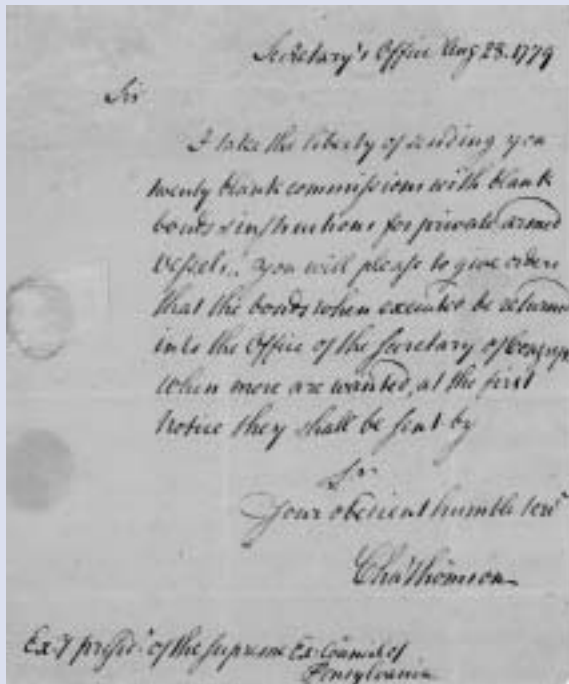 Secretary's Office Aug 28. 1779
Sir
I take the liberty of sending you
twenty blank commissions with blank
bonds & instructions for private armed
vessels. You will please to give orders
that the bonds when executed be returned
into the Office of the Secretary of Congress
When more are wanted, at the first
notice they shall be sent by
Sir
Your obedient humble serv
Cha Thomson
presid.t of the supreme Ex. Council of
Pensylvania